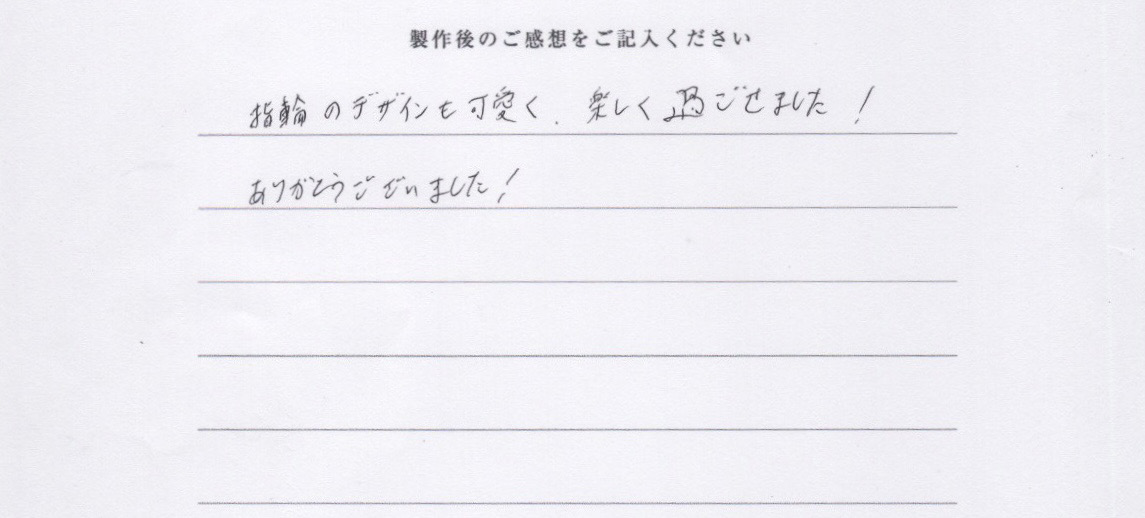 製作後のご感想をご記入ください
指輪のデザインも可愛く、楽しく過ごせました！
ありがとうございました！